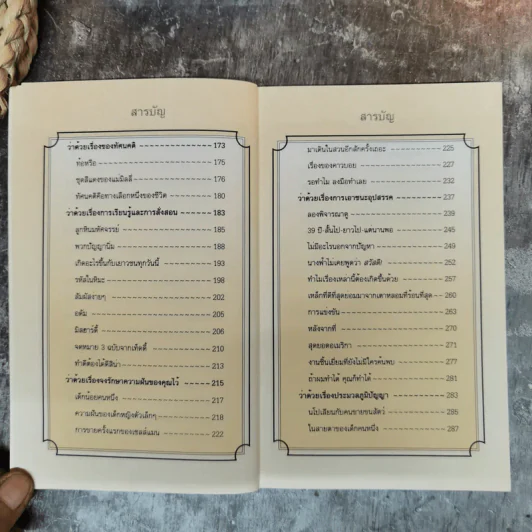 สารบัญ
ว่าด้วยเรื่องของทัศนคติ 173
ท้อหรือ 175
ชุดสีแดงของแม่มิลลี่ 176
ทัศนคติคือทางเลือกหนึ่งของชีวิต 180
ว่าด้วยเรื่องการเรียนรู้และการสั่งสอน 183
ลูกหินมหัศจรรย์ 185
พวกปัญญานิ่ม 188
เกิดอะไรขึ้นกับเยาวชนทุกวันนี้ 193
รหัสในหิมะ 198
สัมผัสง่ายๆ 202
อดัม 205
มิสฮาร์ดี้ 206
จดหมาย 3 ฉบับจากเท็ดดี้ 210
ทำดีต้องได้ดีสิน่า 213
ว่าด้วยเรื่องจงรักษาความฝันของคุณไว้ 215
เด็กน้อยคนหนึ่ง 217
ความฝันของเด็กหญิงตัวเล็กๆ 218
การขายครั้งแรกของเซลล์แมน 222
สารบัญ
มาเดินในสวนอีกสักครั้งเถอะ 225
เรื่องของคาวบอย 227
รอทำไม ลงมือทำเลย 232
ว่าด้วยเรื่องการเอาชนะอุปสรรค 237
ลองพิจารณาดู 239
39 ปี-สั้นไป-ยาวไป-แต่นานพอ 245
ไม่มีอะไรนอกจากปัญหา 249
นางฟ้าไม่เคยพูดว่า สวัสดี! 252
ทำไมเรื่องเหล่านี้ต้องเกิดขึ้นด้วย 257
เหล็กที่ดีที่สุดยอมมาจากเตาหลอมที่ร้อนที่สุด 260
การแข่งขัน 263
หลังจากที่ 270
สุดยอดอเมริกา 271
งานชิ้นเยี่ยมที่ยังไม่มีใครค้นพบ 277
ถ้าผมทำได้ คุณก็ทำได้ 281
ว่าด้วยเรื่องประมวลภูมิปัญญา 283
นโปเลียนกับคนขายขนสัตว์ 285
ในสายตาของเด็กคนหนึ่ง 287